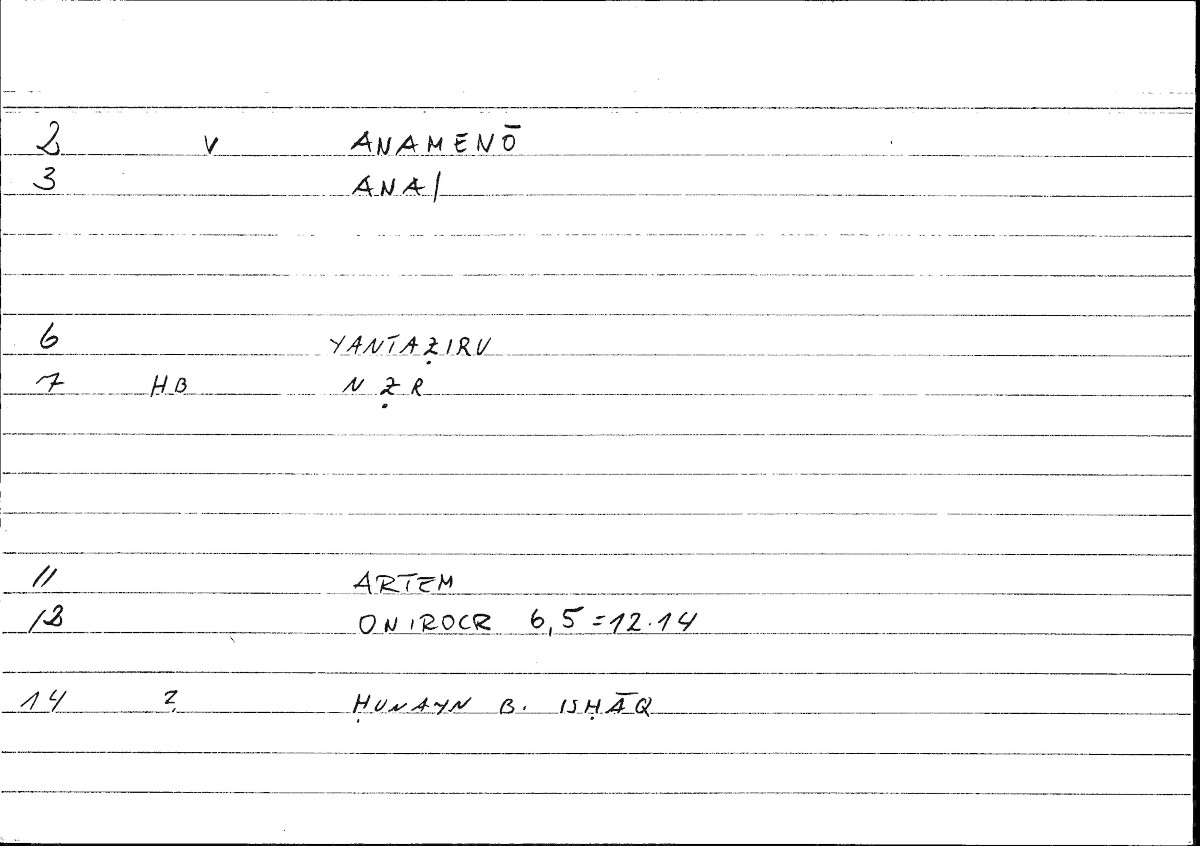 2 V ANAMENŌ
3 ANA/
6 YANTAẒIRU
7 HB NẒR
11 ARTEM
12 ONIROCR 6,5=12.14
14 2 ḤUNAYN B. ISḤĀQ